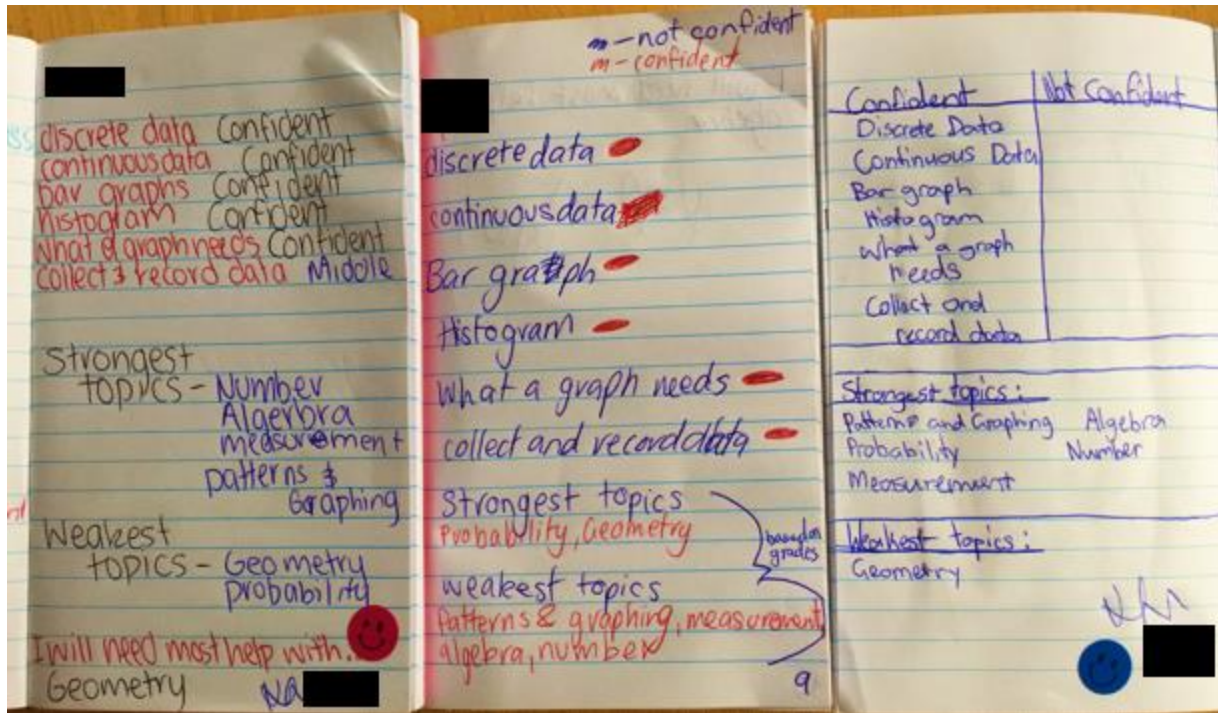 discrete data Confident
continuous data Confident
bar graphs Confident
histogram Confident
what a graph needs Confident
collect & record data Middle
Strongest
topics - Number
Algerbra
measurement
patterns &
Graphing
Weakest
topics - Geometry
probability
I will need most help with.
Geometry
m - not confident
m - confident
discrete data
continuous data
Bar graph
Histogram
what a graph needs
collect and record data
Strongest topics
Probability, Geometry
based on
grades
weakest topics
Patterns & graphing, measurement,
algebra, number
9
Confident Not Confident
Discrete Data
Continuous Data
Bar graph
Histogram
What a graph
needs
Collect and
record data
Strongest topics:
Patterns and Graphing Algebra
Probability Number
Measurement
Weakest topics:
Geometry